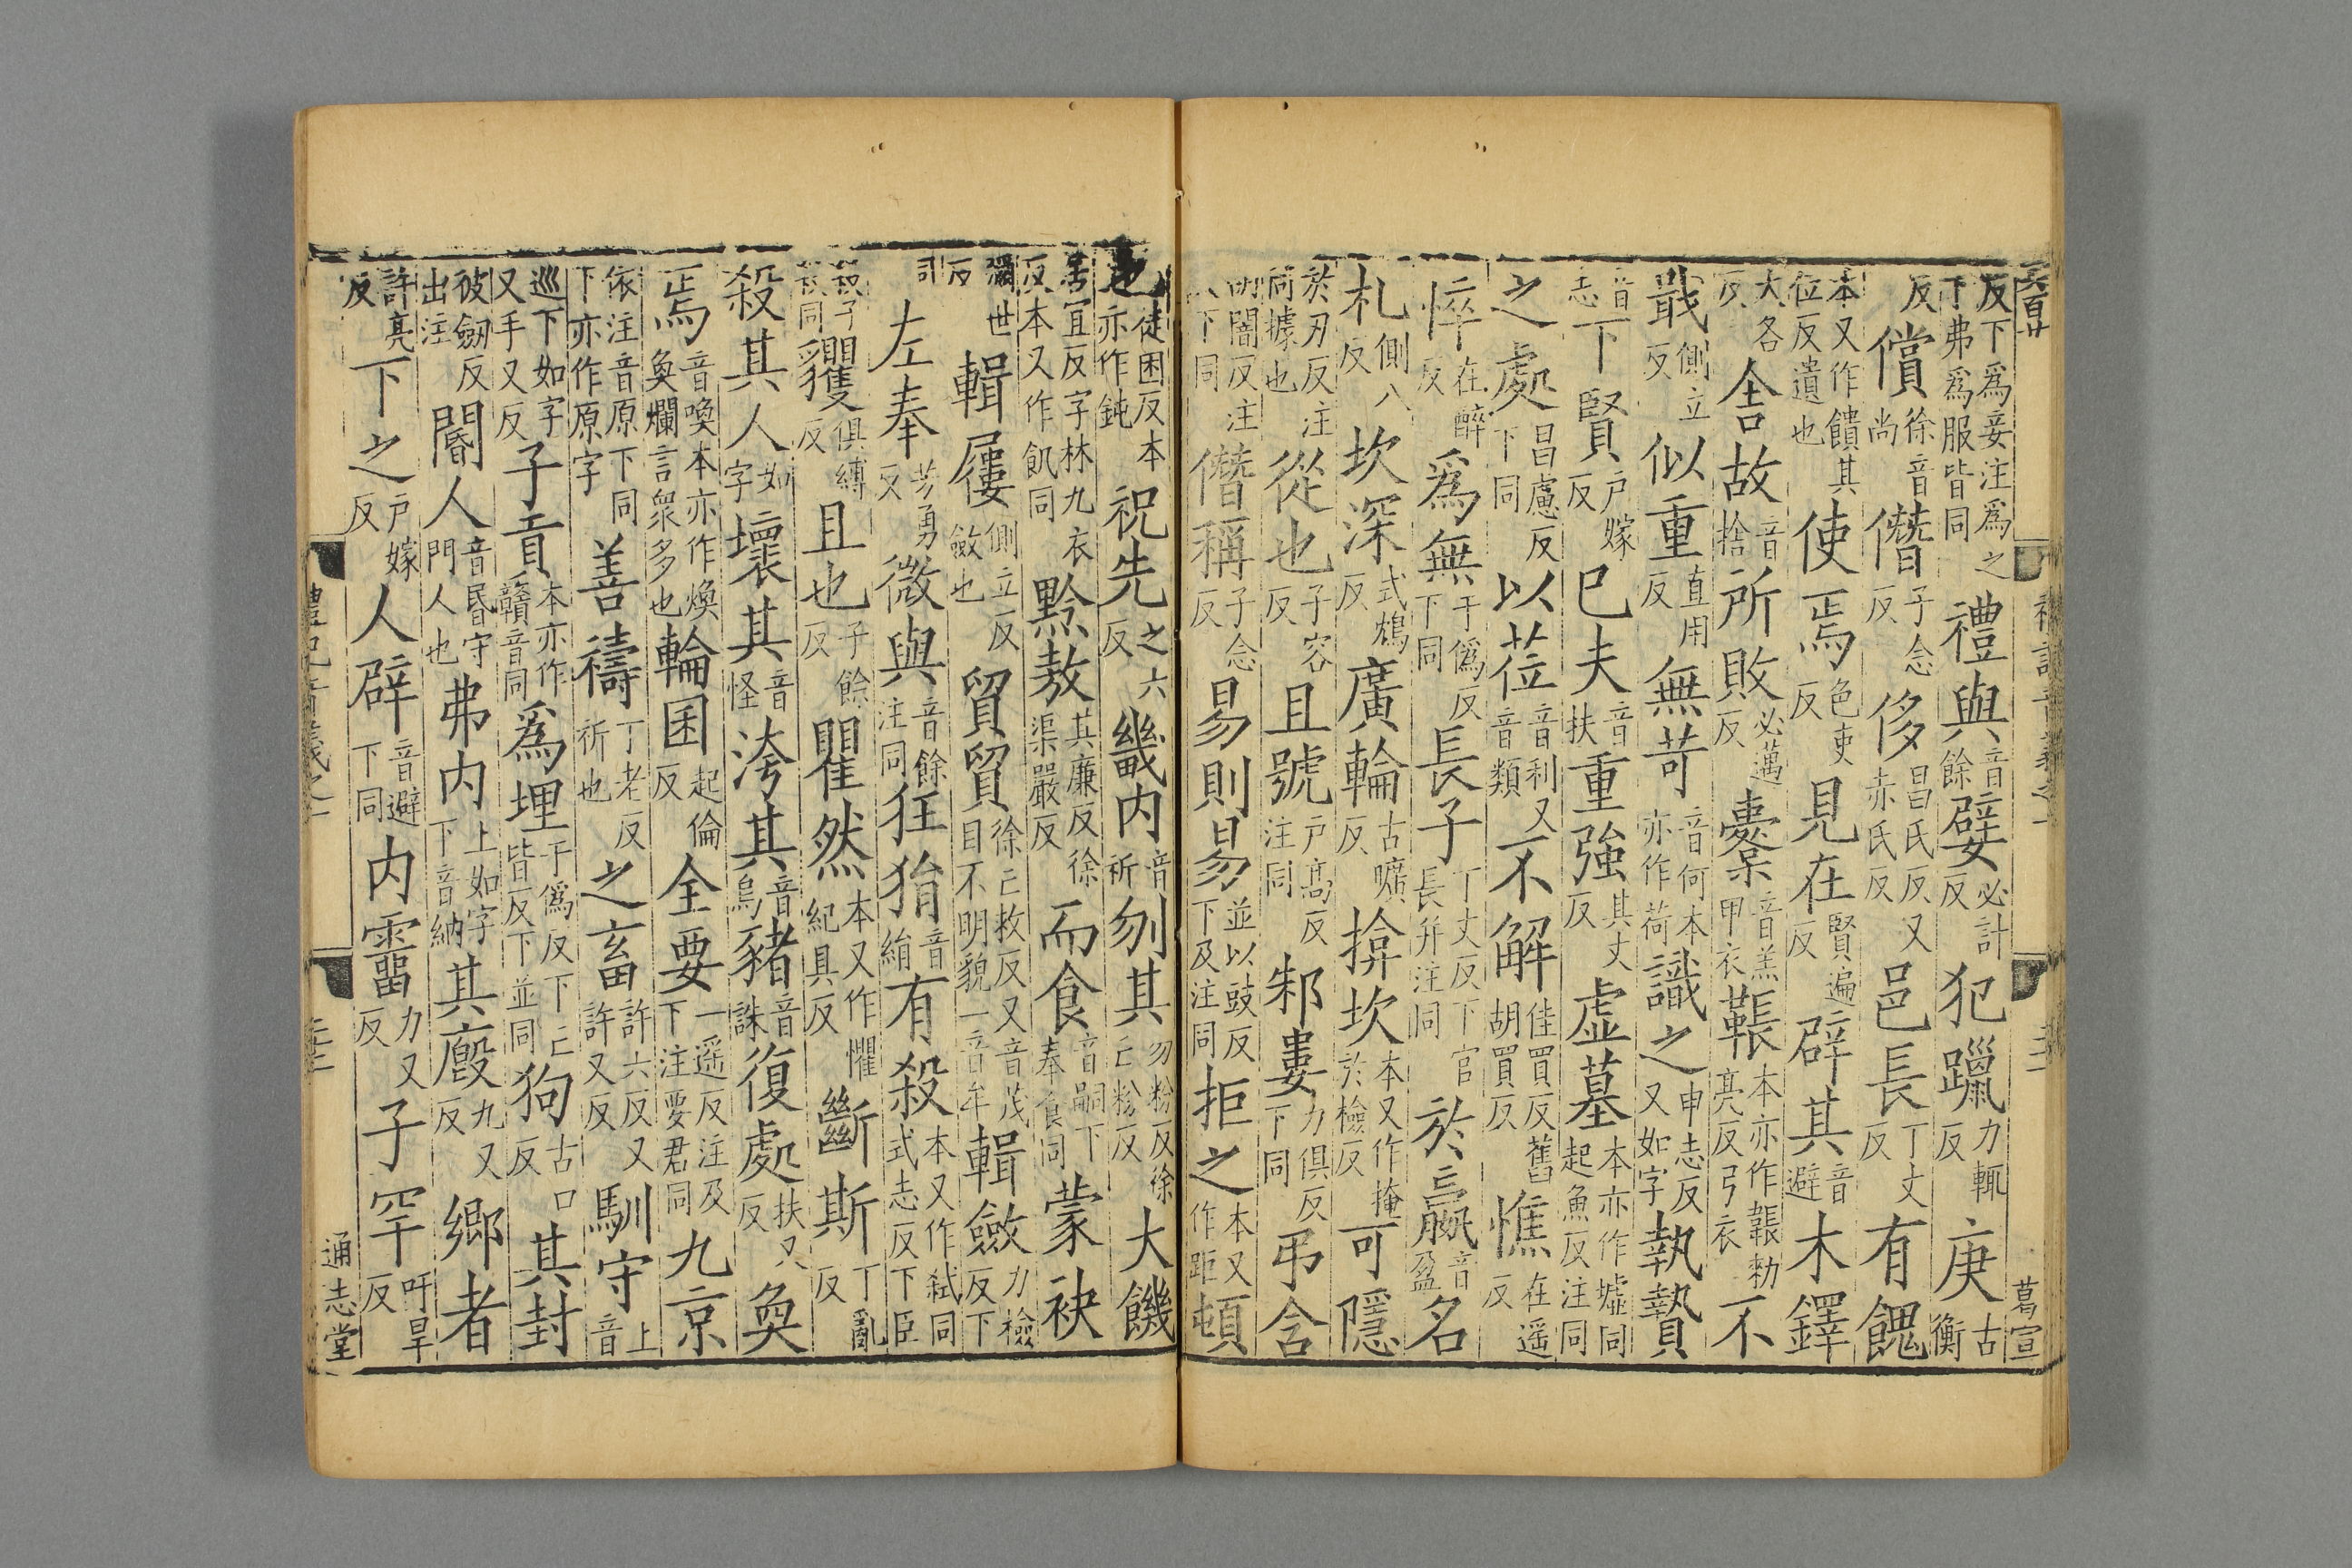 六百廿 禮記音義之一 二十一 葛宣
反下爲妾注爲之下弗爲服皆同 禮與音餘 嬖必計反 犯躐力輒反 庚古衡
反 償徐音尚 僭子念反 侈昌氏反又赤氏反 邑長丁丈反 有餽
本又作饋其位反遺也 使焉色吏反 見在賢遍反 辟其音避 木鐸
大各反 舍故音捨 所敗必邁反 櫜音羔甲衣 韔本亦作韔勑亮反弓衣 不
戢側立反 似重直用反 無苛音何本亦作荷 識之申志反又如字 執贄
音志 下賢戶嫁反 已夫音扶 重強其丈反 虛墓本亦作墟同起魚反注同
之處昌慮反下同 以莅音利又音類 不解佳買反舊胡買反 憔在遥反
悴在醉反 爲無于僞反下同 長子丁丈反下官長并注同 於嬴音盈 名
札側八反 坎深式鴆反 廣輪古曠反 揜坎本又作掩於檢反 可隱
於刃反注同據也 從也子容反 且號戶高反注同 邾婁力俱反下同 弔含
胡闇反注及下同 僭稱子念反 易則易並以豉反下及注同 拒之本又作距 頓
也徒困反本亦作鈍 祝先之六反 畿內音祈 刎其勿粉反徐亡粉反 大饑
居宜反字林九衣反本又作飢同 黔敖其廉反徐渠嚴反 而食音嗣下奉食同 蒙袂
彌世反 輯屨側立反斂也 貿貿徐亡救反又音茂目不明貌一音牟 輯斂力檢反下
同 左奉芳勇反 微與音餘注同 狂狷音絹 有殺本又作弒同式志反下臣
殺子殺同 貜俱縛反 且也子餘反 瞿然本又作懼紀具反 斷斯丁亂反
殺其人如字 壞其音怪 洿其音烏 豬音誅 復處扶又反 奐
焉音喚本亦作煥奐爛言衆多也 輪囷起倫反 全要一遥反注及下注要君同 九京
依注音原下同下亦作原字 善禱丁老反祈也 之畜許六反又許又反 馴守上音
巡下如字又手又反 子貢本亦作贛音同 爲埋于僞反下亡皆反下並同 狗古口反 其封
彼劒反出注 閽人音昏守門人也 弗内上如字下音納 其廏九又反 鄉者
許亮反 下之戶嫁反 人辟音避下同 内霤力又反 子罕吁旱反
禮記音義之一 二十一 通志堂